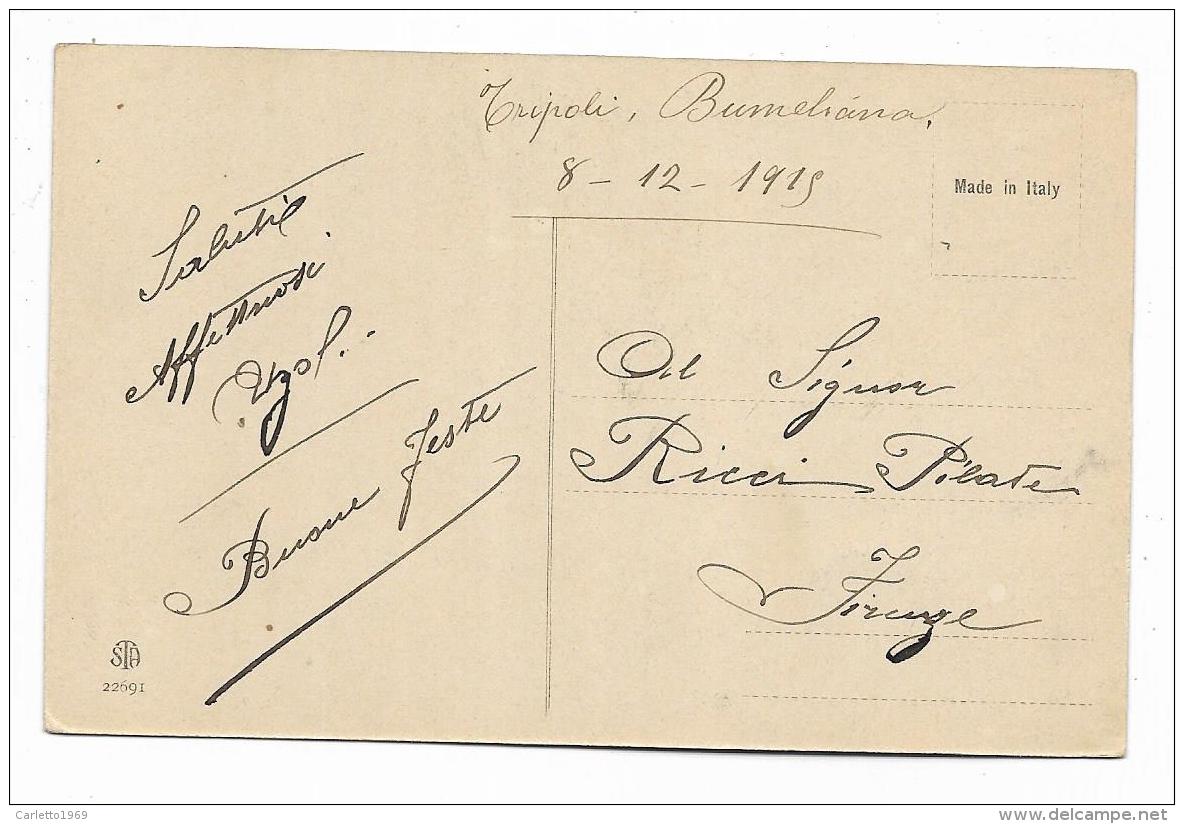 Tripoli, Bumeliana.
8 - 12 - 1915
Made in Italy
Saluti
Affettuosi
Buone feste
Al Signor
Ricci Pilade
Firenze
STA
22691
Carletto1969
delcampe.net